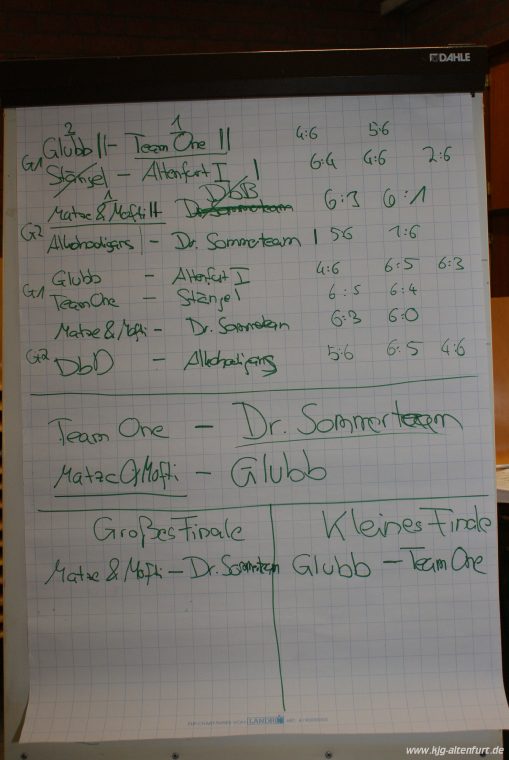 DAHLE
2 1
Glubb || - Team One || 4:6 5:6
G1
Stängel - Altenfurt I | 6:4 4:6 2:6
1 DbB
Matze & Mofti || Dr. Sommerteam 6:3 6:1
G2
Alkohooligans | - Dr. Sommerteam | 5:6 1:6
Glubb - Altenfurt I 4:6 6:5 6:3
G1
Team One - Stängel 6:5 6:4
Matze & Mofti - Dr. Sommerteam 6:3 6:0
G2
DbD - Alkohooligans 5:6 6:5 4:6
Team One - Dr. Sommerteam
Matze & Mofti - Glubb
Großes Finale
Matze & Mofti - Dr. Sommerteam
Kleines Finale
Glubb - Team One
LANDRÉ
www.kjg-altenfurt.de